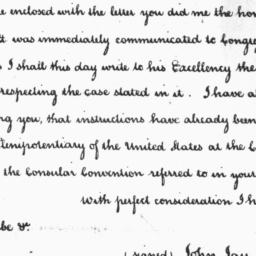 e enclosed with the letter you did me the hon
It was immediately communicated to Congre
s I shall this day write to his Excellency the
respecting the case stated in it. I have a
ng you, that instructions have already been
lenipotentiary of the United States at the C
the Consular Convention referred to in your
With perfect consideration I h
be &c.
(signed) John Jay